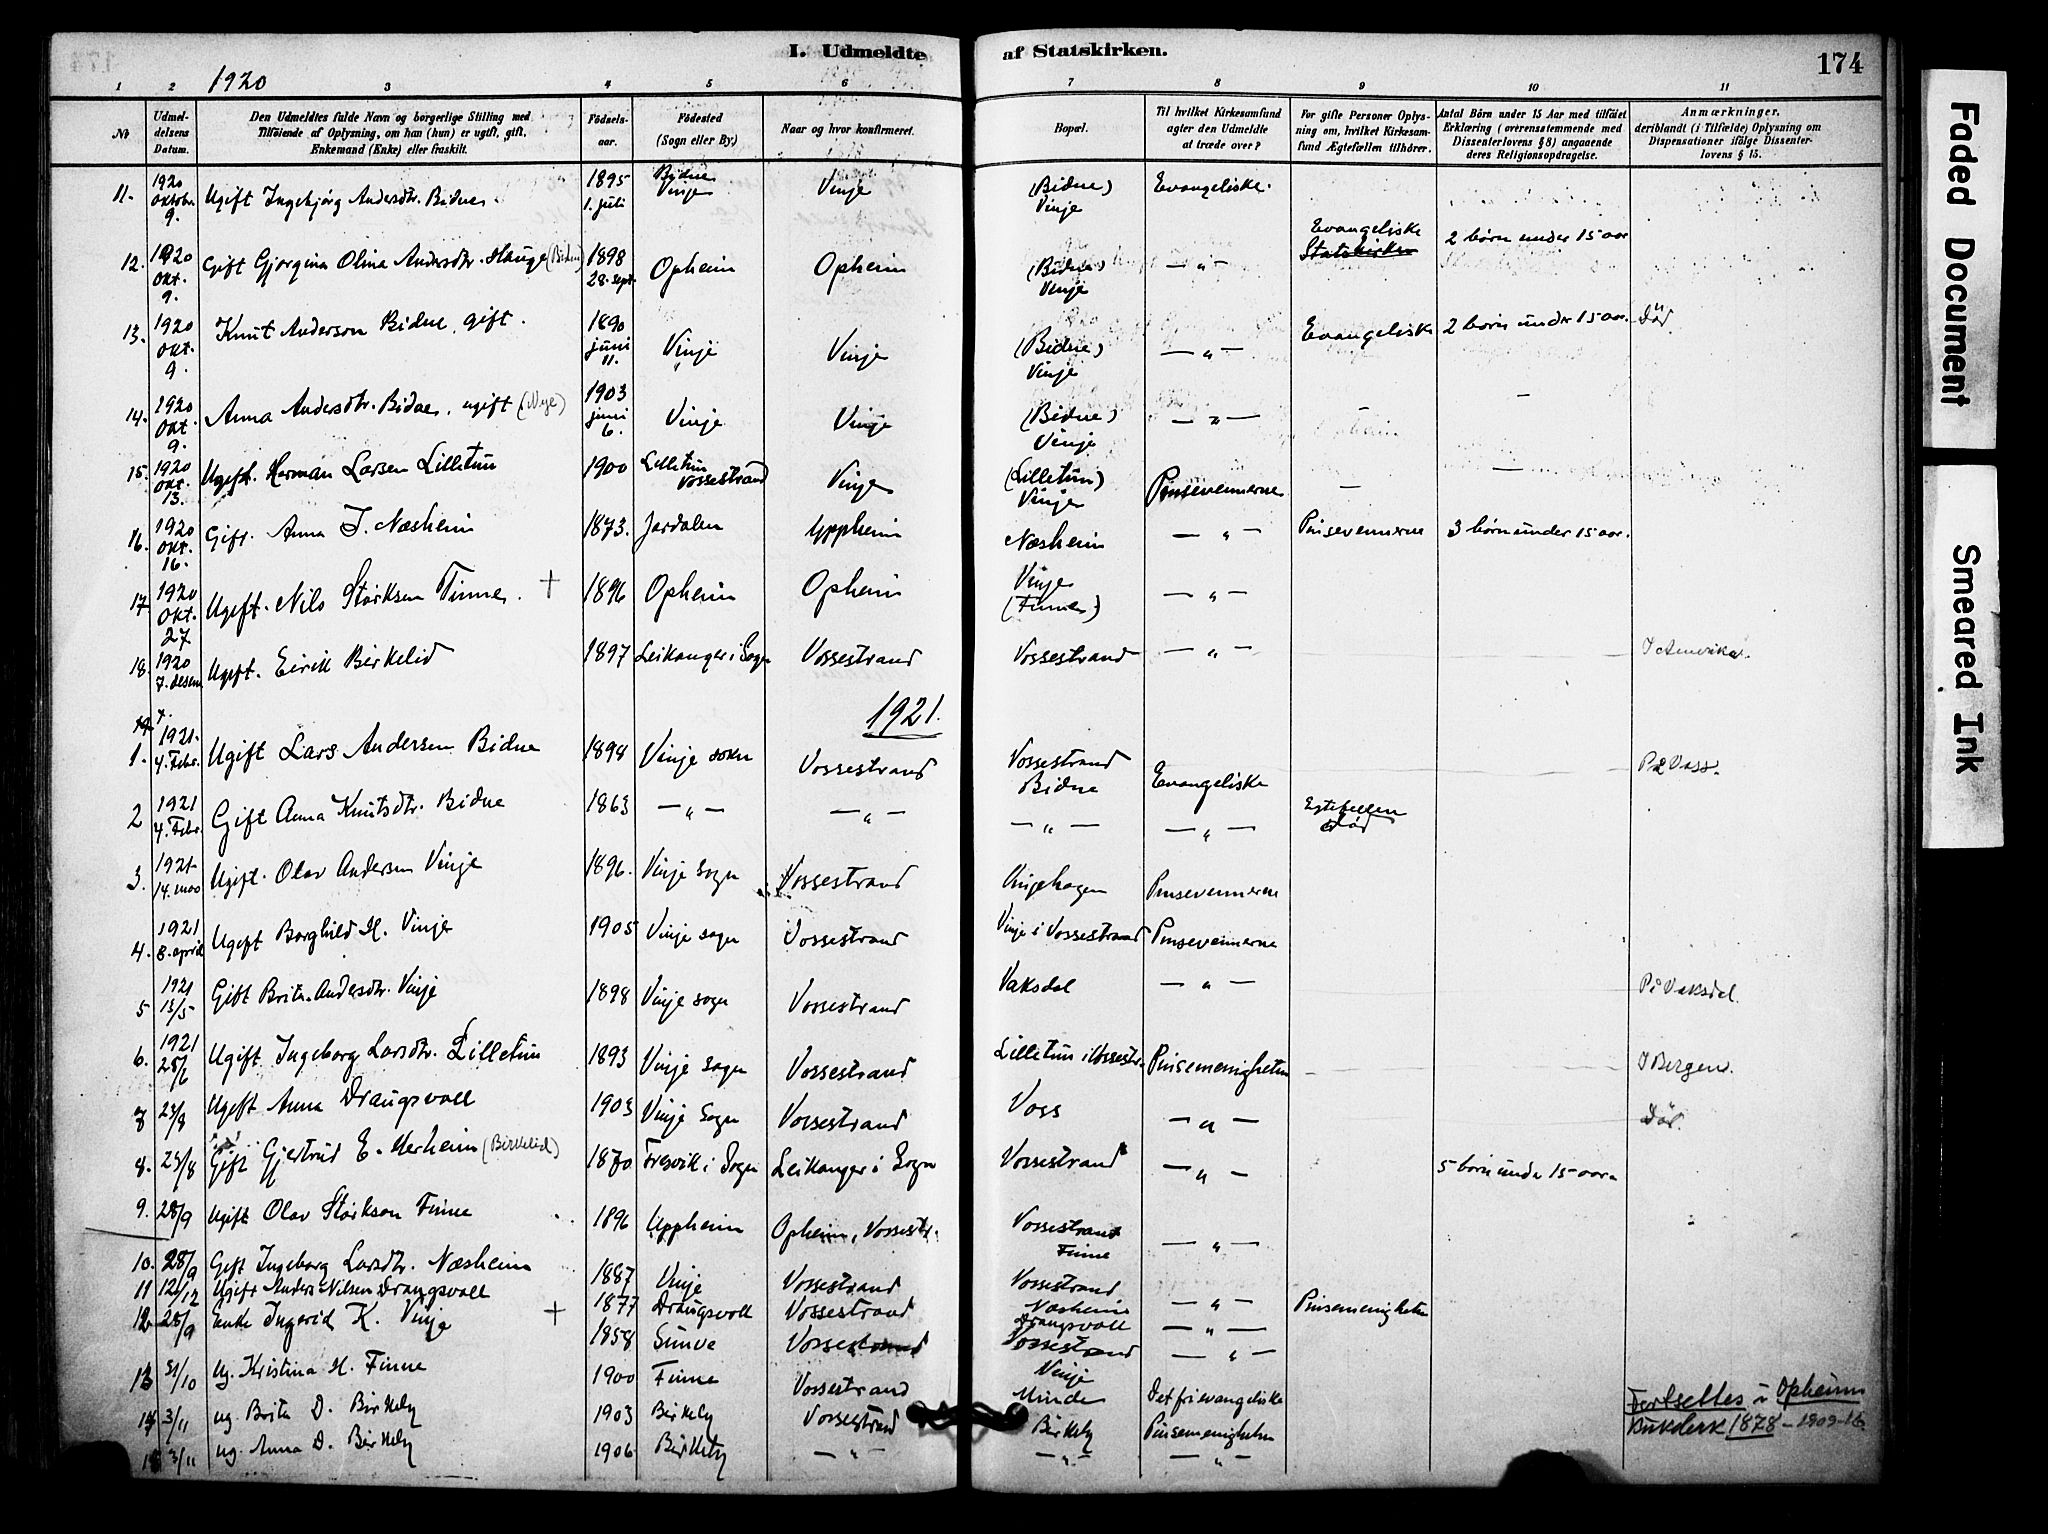 I. Udmeldte af Statskirken.
174
1920
1 2 3 4 5 6 7 8 9 10 11
No
Udmel-
delsens
Datum.
Den Udmeldtes fulde Navn og borgerlige Stilling med
Tilføiende af Oplysning, om han (hun) er ugift, gift,
Enkemand (Enke) eller fraskilt.
Fødsels-
aar.
Fødested
(Sogn eller By.)
Naar og hvor konfirmeret.
Bopæl.
Til hvilket Kirkesamfund
agter den Udmeldte
at træde over?
For gifte Personer Oplys-
ning om, hvilket Kirkesam-
fund Ægtefællen tilhører.
Antal Børn under 15 Aar med tilføiet
Erklæring (overensstemmende med
Dissenterlovens § 8) angaaende
deres Religionsopdragelse.
Anmærkninger,
deriblandt (i Tilfælde) Oplysning om
Dispensationer ifølge Dissenter-
lovens § 15.
11. 1920 Oktobr. 9. Ugift Ingebjørg Andersdtr. Bidne. 1895 1. juli Bidne Vinje Vinje (Bidne) Vinje Evangeliske.
12. 1920 Okt. 9. Gift Gjorgina Olina Andersdtr. Hauge (Bidne) 1898 28. sept. Opheim Opheim (Bidne) Vinje — „ — Evangeliske Statskirken 2 børn under 15 aar
13. 1920 Okt. 9. Knut Anderson Bidne, gift. 1890 juni 11. Vinje Vinje (Bidne) Vinje — „ — Evangelisk 2 børn under 15 aar. Død
14. 1920 Okt. 9. Anna Andersdtr. Bidne, ugift 1903 juni 6. Vinje Vinje (Bidne) Vinje — „ — – –
15. 1920 Okt. 13. Ugift. Herman Larsen Lilletun 1900 Lilletun Vossestrand Vinje (Lilletun) Vinje Pinsevennerne — —
16. 1920 Okt. 16. Gift. Anna J. Næsheim 1873. Jordalen Uppheim Næsheim — „ — Pinsevennerne 3 børn under 15 aar.
17 1920 Okt. 27 Ugift. Nils Størksen Finne. + 1896 Opheim Opheim Vinje (Finne) — „ —
18. 1920 7. desem Ugift. Eirik Birkelid 1897 Leikanger i Sogn Vossestrand Vossestrand — „ — I Amerika.
1921.
1. 1921. 4. Febr. Ugift Lars Andersen Bidne 1898 Vinje sokn Vossestrand Vossestrand Bidne Evangeliske På Voss.
2 1921 4. Febr. Gift Anna Knutsdtr. Bidne 1863 — „ — — „ — — „ — — „ — Egtefellen død
3. 1921 14. mars Ugift. Olav Andersen Vinje 1896. Vinje Sogn Vossestrand Vinjehagen Pinsevennerne
4. 1921 8. april Ugift Borghild H. Vinje 1905 Vinje sogn Vossestrand Vinje i Vossestrand Pinsevennerne
5 1921 13/5 Gift Brita Andersdtr. Vinje 1898 Vinje sogn Vossestrand Vaksdal — „ — På Vaksdal.
6. 1921 25/6 Ugift Ingeborg Larsdtr. Lilletun 1893 Vinje sogn Vossestrand Lilletun i Vossestr. Pinsemenigheten I Bergen.
7 23/8 Ugift Anna Draugsvoll 1903 Vinje Sogn Vossestrand Voss — „ — Død.
8. 23/8 Gift Gjertrud E. Merheim (Birkelid) 1870 Fresvik i Sogn Leikanger i Sogn Vossestrand — „ — 5 børn under 15 aar
9. 28/9 Ugift Olav Størkson Finne 1896 Uppheim Opheim, Vossestr. Vossestrand Finne — „ —
10. 28/9 Gift Ingeborg Larsdtr. Næsheim 1887 Vinje Vossestrand Vossestrand Næsheim — „ — Pinsemenigheten
11 12/12 Ugift Anders Nilsen Draugsvoll 1877 Draugsvoll Vossestrand Draugsvoll — „ —
12 28/9 Enke Ingerid K. Vinje + 1858 Sunve Vossestrand Vossestrand Vinje — „ —
13 31/10 Ug. Kristina H. Finne 1900 Finne Vossestrand Minde Det frievangeliske
14 3/11 ug. Brita D. Birkely 1903 Birkely Vossestrand Birkely Pinsemenigheten
15 3/11 ug. Anna D. Birkely 1906 Birkely — „ — — „ — — „ —
Fortsettes i Opheim
1878 – 1909-16
Faded Document
Smeared Ink